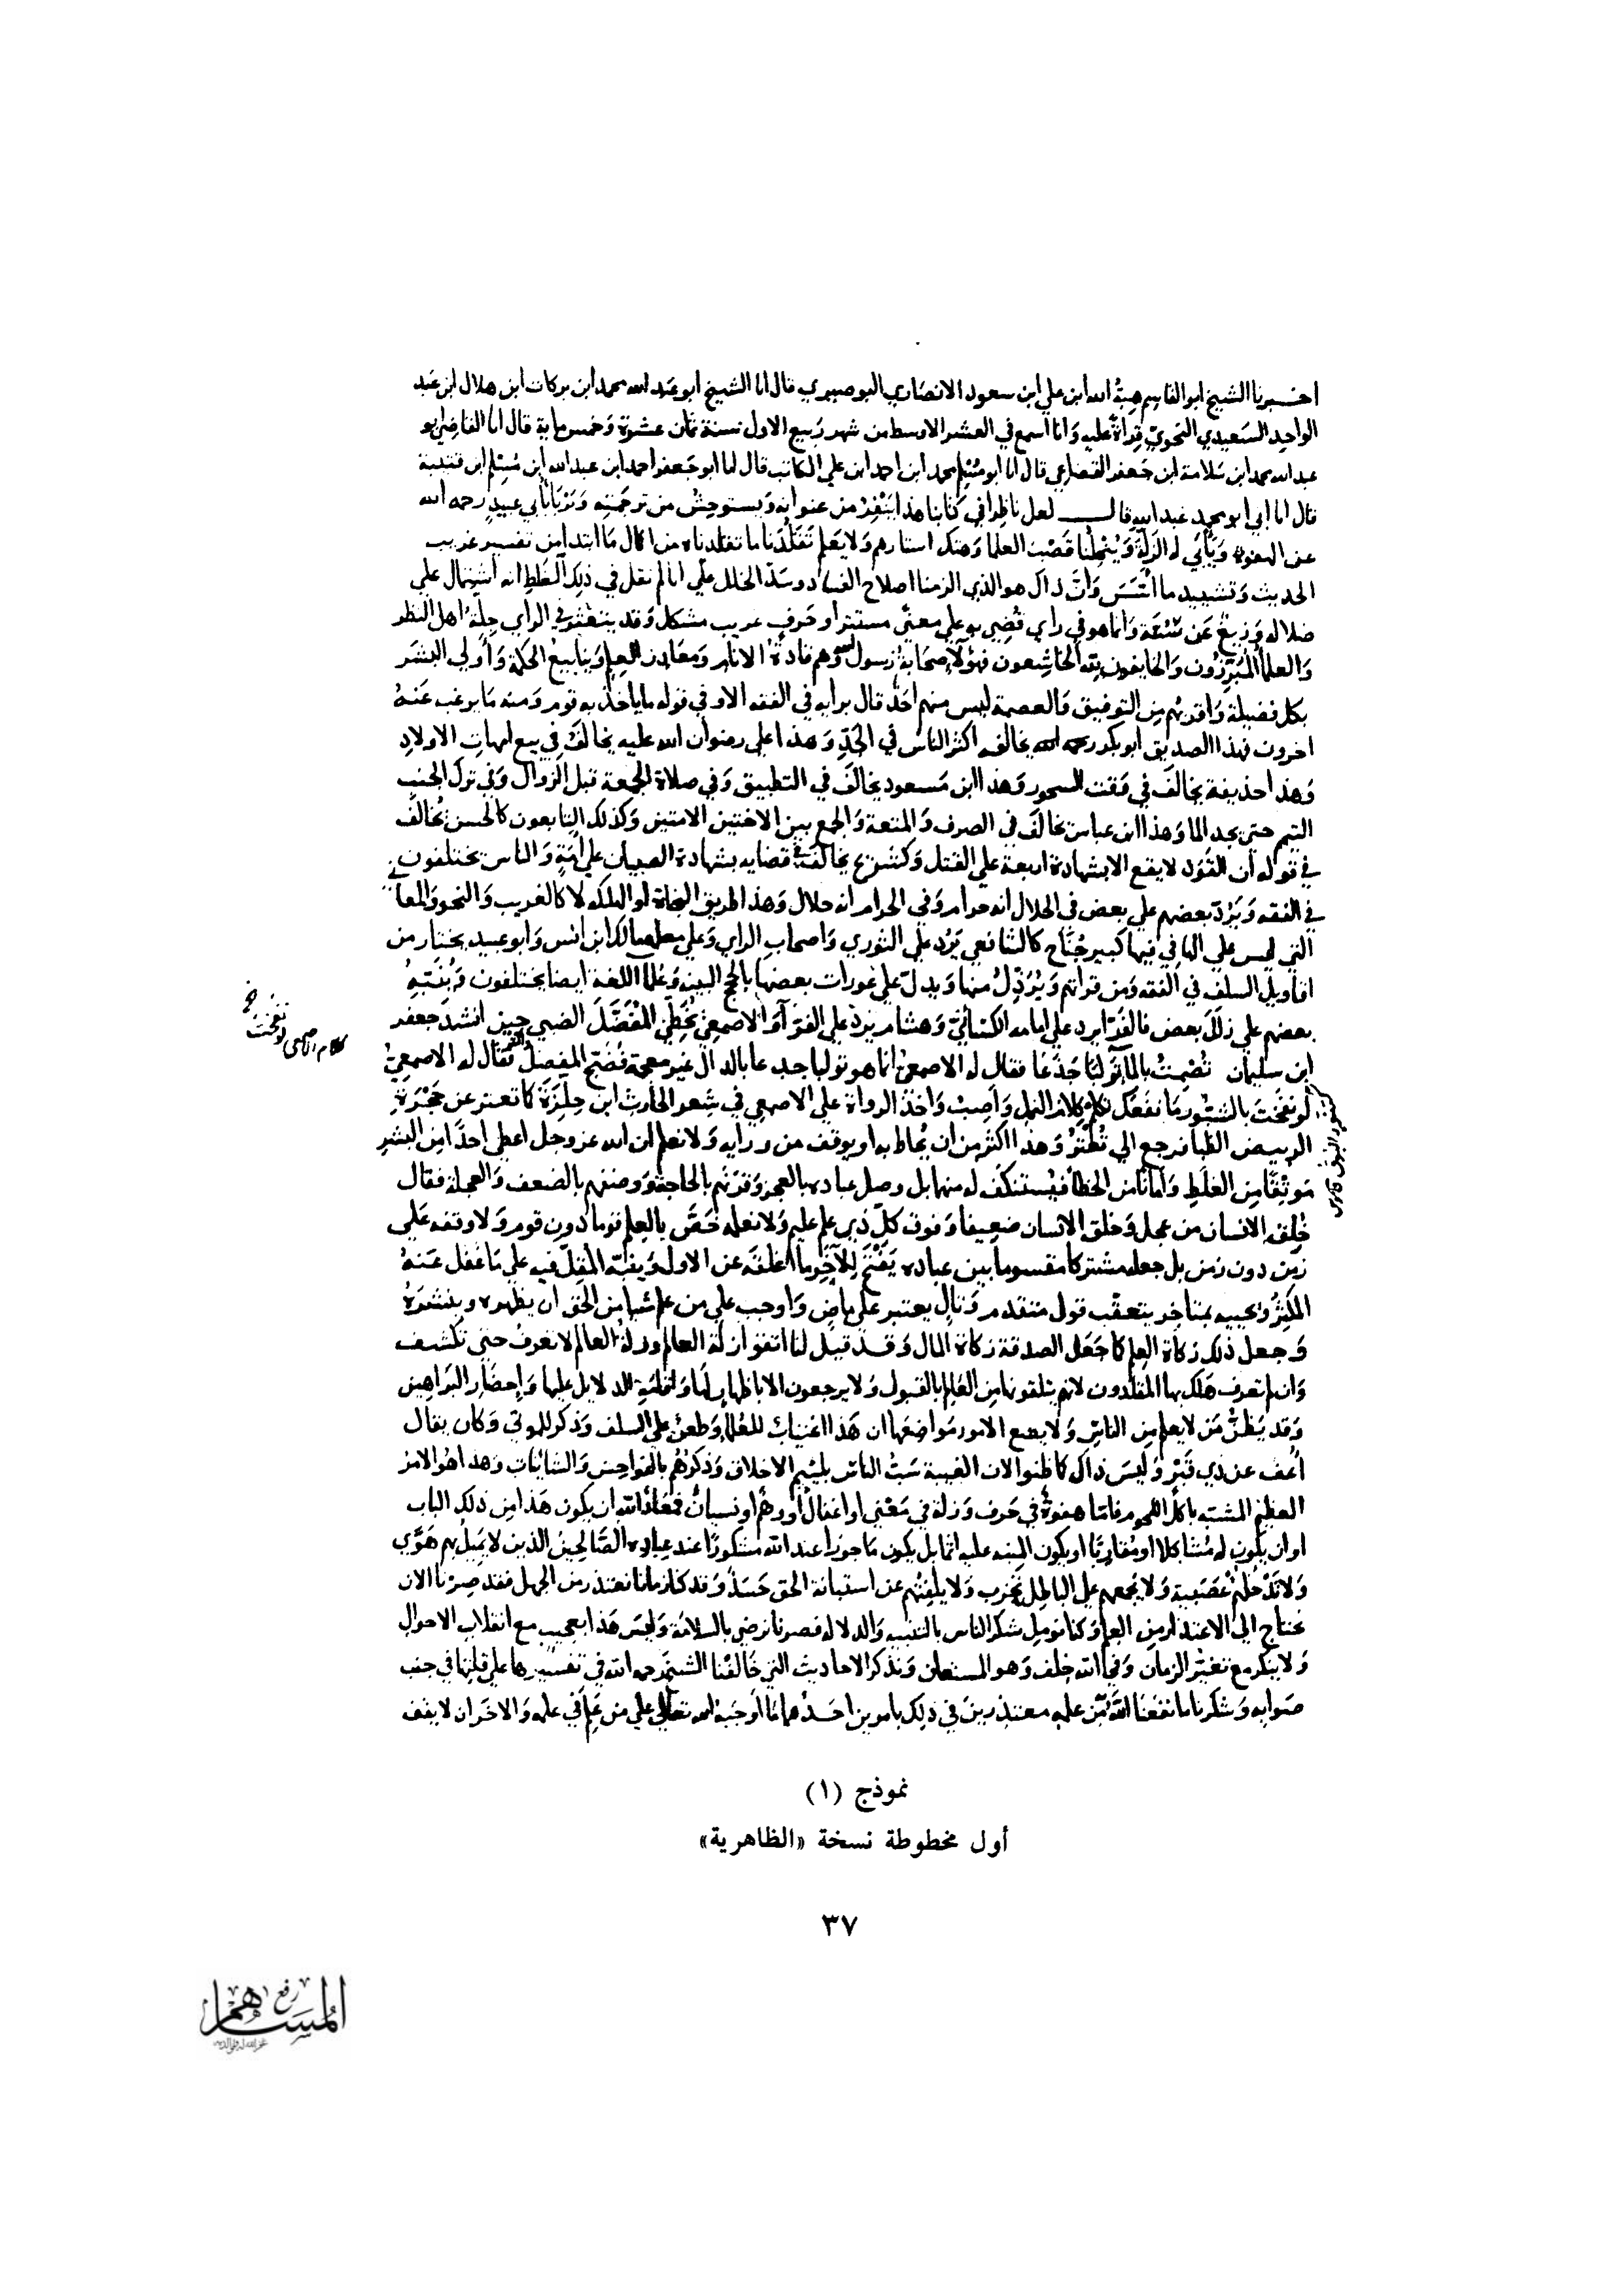 اخبرنا الشيخ ابو القاسم هبة الله ابن علي ابن سعود الانصاري البوصيري قال انا الشيخ ابو عبد الله محمد ابن بركات ابن هلال ابن عبد
الواحد السعيدي النحوي قراة عليه وانا اسمع في العشر الاوسط من شهر ربيع الاول سنة ثمان عشرة وخمس ماية قال انا القاضي ابو
عبد الله محمد ابن سلامة ابن جعفر القضاعي قال انا ابو مسلم محمد ابن احمد ابن علي الكاتب قال انا ابو جعفر احمد ابن عبد الله ابن مسلم ابن قتيبة
قال انا ابي ابو محمد عبد الله قال لعل ناظرا في كتابنا هذا ينفر من عنوانه ويستوحش من ترجمته ويربا بابي عبيد رحمه الله
عن الهفوة ويابى له الزلة وينحلنا قصب العلما وهتك استارهم ولا يعلم تقلدنا ما تقلدناه من اكمال ما ابتدا من تفسير غريب
الحديث وتشييد ما اسس وان ذاك هو الذي الزمنا اصلاح الفساد وسد الخلل على انا لم نقل في ذلك الغلط انه اشتمال على
ضلاله وزيغ عن سنة وانما هو في راي قضي به على معنى مستتر او حرف غريب مشكل وقد يتعثر في الراي جلة اهل النظر
والعلما المبرزون والخايفون لله الخاشعون فهولا صحابة رسول الله وهم قادة الانام ومعادن العلم وينابيع الحكمة واولي البشر
بكل فضيلة واقربهم من التوفيق والعصمة ليس منهم احد قال برايه في الفقه الا وفي قوله ما ياخذ به قوم ومنه ما يرغب عنه
اخرون فهذا الصديق ابو بكر رحمه الله يخالف اكثر الناس في الجد وهذا علي رضوان الله عليه يخالف في بيع امهات الاولاد
وهذا حذيفة يخالف في وقت السحور وهذا ابن مسعود يخالف في التطبيق وفي صلاة الجمعة قبل الزوال وفي ترك الجنب
التيمم حتى يجد الما وهذا ابن عباس يخالف في الصرف والمتعة والجمع بين الاختين الامتين وكذلك التابعون كالحسن يخالف
في قوله ان القود لا يقع الا بشهادة اربعة على القتل وكشريح يخالف في قضايه بشهادة الصبيان على والناس يختلفون
في الفقه ويرد بعضهم على بعض في الحلال انه حرام وفي الحرام انه حلال وهذا طريق النجاة او الهلكة لا كالغريب والنحو والمعاني
التي ليس على الهافي فيها كبير جناح كالشافعي يرد على الثوري واصحاب الراي وعلى معلمه مالك ابن انس وابو عبيد يختار من
اقاويل السلف في الفقه ومن قراتهم ويرذل منها ويدل على عورات بعضها بالحجج البينة وعلما اللغة ايضا يختلفون وينبه
بعضهم على زلل بعض فالفرا يرد على امامه الكسائي وهشام يرد على الفرا والاصمعي يخطي المفضل الضبي حين انشد جعفر
ابن سليمان تصمت بالما تولبا جذعا فقال له الاصمعي انما هو تولبا جدعا بالدال غير معجمة فضج المفضل فقال له الاصمعي
لو نفخت بالشبور ما نفعك تكلم كلام النمل واصب واخذ الرواة على الاصمعي في شعر الحارث ابن حلزة كما تعنز عن حجرة
الربيض الظبا فرجع الى تعتر وهذا اكثر من ان يحاط به او يوقف من ورايه ولا نعلم ان الله عز وجل اعطى احدا من البشر
موثقا من الغلط وامانا من الخطا فيستنكف له منها بل وصل عباده بالعجز وقرنهم بالحاجة ووصفهم بالضعف والعجلة فقال
خلق الانسان من عجل وخلق الانسان ضعيفا وفوق كل ذي علم عليم ولا نعلمه خص بالعلم قوما دون قوم ولا وقفه على
زمن دون زمن بل جعله مشتركا مقسوما بين عباده يفتح للاخر ما اغلقه عن الاول وينبه المقل فيه على ما غفل عنه
المكثر ويحييه بمتاخر يتعقب قول متقدم وتال يعتبر على ماض واوجب على من علم شيا من الحق ان يظهره وينشره
وجعل ذلك زكاة العلم كما جعل الصدقة زكاة المال وقد قيل لنا اتقوا زلة العالم وزلة العالم لا تعرف حتى تكشف
وان لم تعرف هلك بها المقلدون لانهم يتلقونها من العالم بالقبول ولا يرجعون الا بالاظهار لها واقامة الدلايل عليها واحضار البراهين
وقد يظن من لا يعلم من الناس ولا يضع الامور مواضعها ان هذا اغتياب للعلما وطعن على السلف وذكر للموتى وكان يقال
اعف عن ذي قبر وليس ذاك كما ظنوا لان الغيبة سب الناس بلييم الاخلاق وذكرهم بالفواحش والشاينات وهذا هو الامر
العظيم المشبه باكل اللحوم فاما هفوة في حرف وزلة في معنى او اغفال او وهم او نسيان فمعاذ الله ان يكون هذا من ذلك الباب
او ان يكون له مشاكلا او مقاربا او يكون المنبه عليه اثما بل يكون ماجورا عند الله مشكورا عند عباده الصالحين الذين لا يميل بهم هوى
ولا تدخلهم عصبية ولا يجمعهم على الباطل تحزب ولا يلفتهم عن استبانة الحق حسد وقد كنا زمانا نعتذر من الجهل فقد صرنا الان
نحتاج الى الاعتذار من العلم وكنا نومل شكر الناس بالتنبيه والدلالة فصرنا نرضى بالسلامة وليس هذا بعجيب مع انقلاب الاحوال
ولا ينكر مع تغير الزمان وفي الله خلف وهو المستعان ونذكر الاحاديث التي خالفنا الشيخ رحمه الله في تفسيرها على قلتها في جنب
صوابه وشكرنا ما نفعنا الله من علمه معتذرين في ذلك بامرين احدهما ما اوجبه الله تعالى على من علم في علمه والاخر ان لا يقف
نموذج (١)
أول مخطوطة نسخة «الظاهرية»
٣٧
رفع
المساهم
غفر الله له ولوالديه